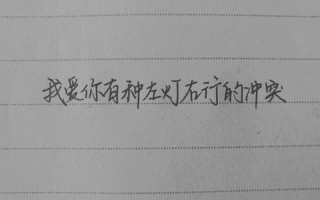 我爱你有种左灯右行的冲突